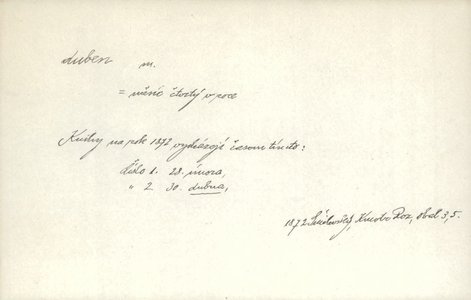 duben m.
= měsíc čtvrtý v roce
Knihy na rok 1872 vycházejí časem tímto:
Číslo 1. 28. února,
" 2. 30. dubna,
1872 Roz, obal. 3, 5.